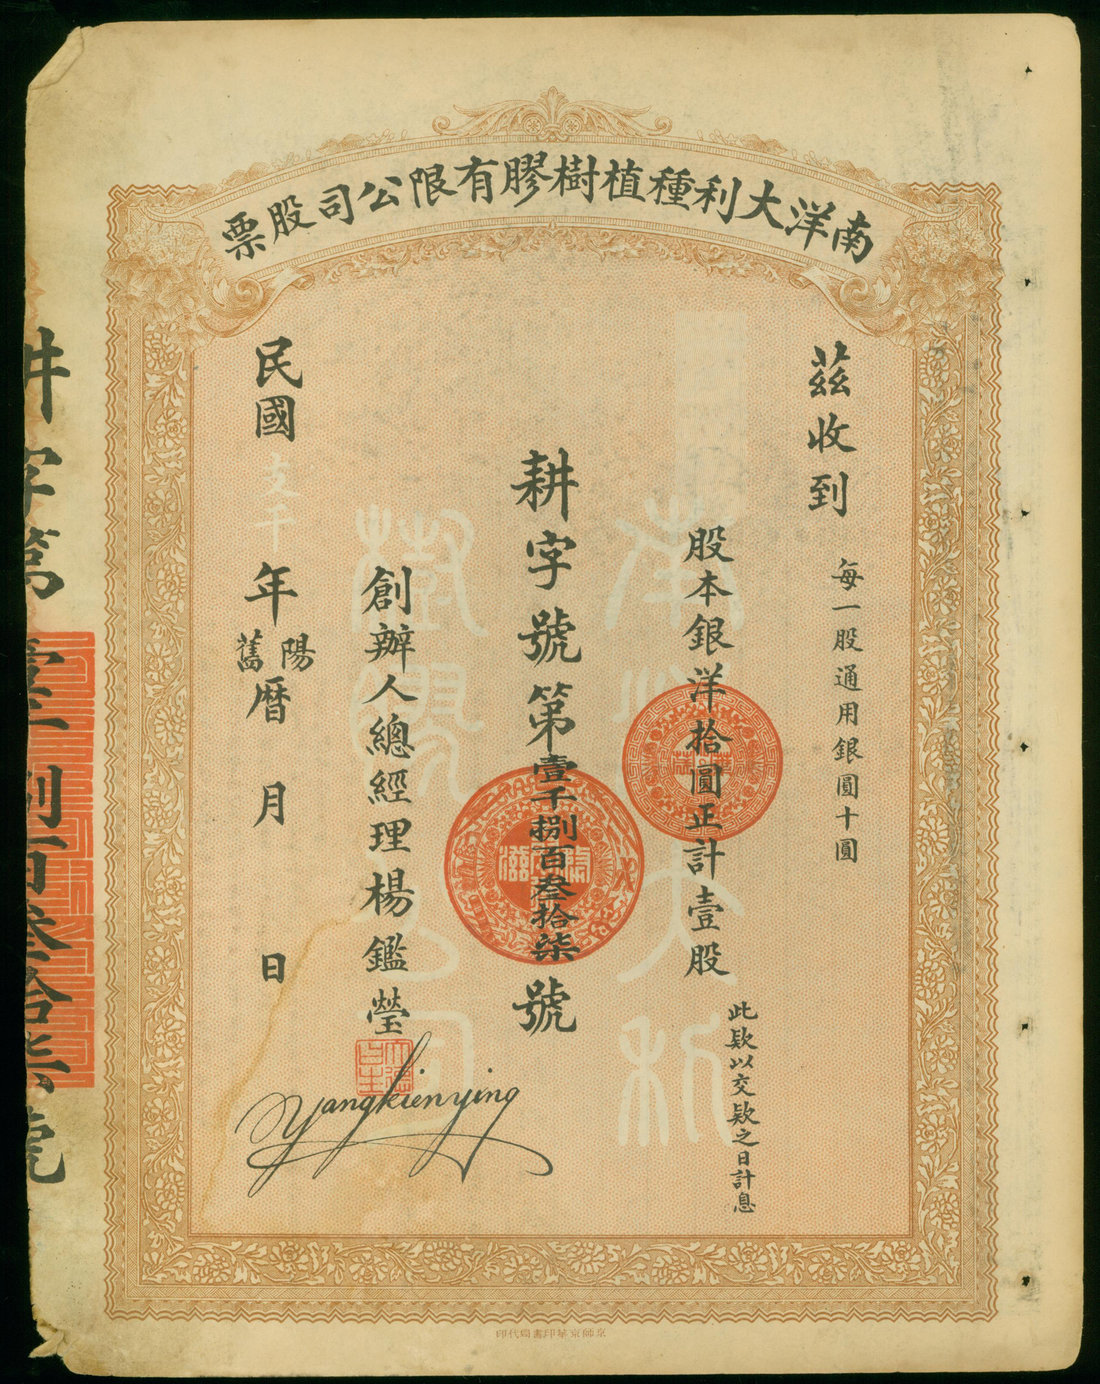 南洋大利種植樹膠有限公司股票
茲收到
每一股通用銀圓十圓
股本銀洋拾圓正計壹股
此欵以交欵之日計息
耕字號第壹千捌百叁拾柒號
創辦人總經理楊鑑瑩
Yangkienying
民國 年陽舊曆 月 日
耕字第壹千捌百叁拾柒號
南洋大利
樹膠公司
京師京華印書局代印